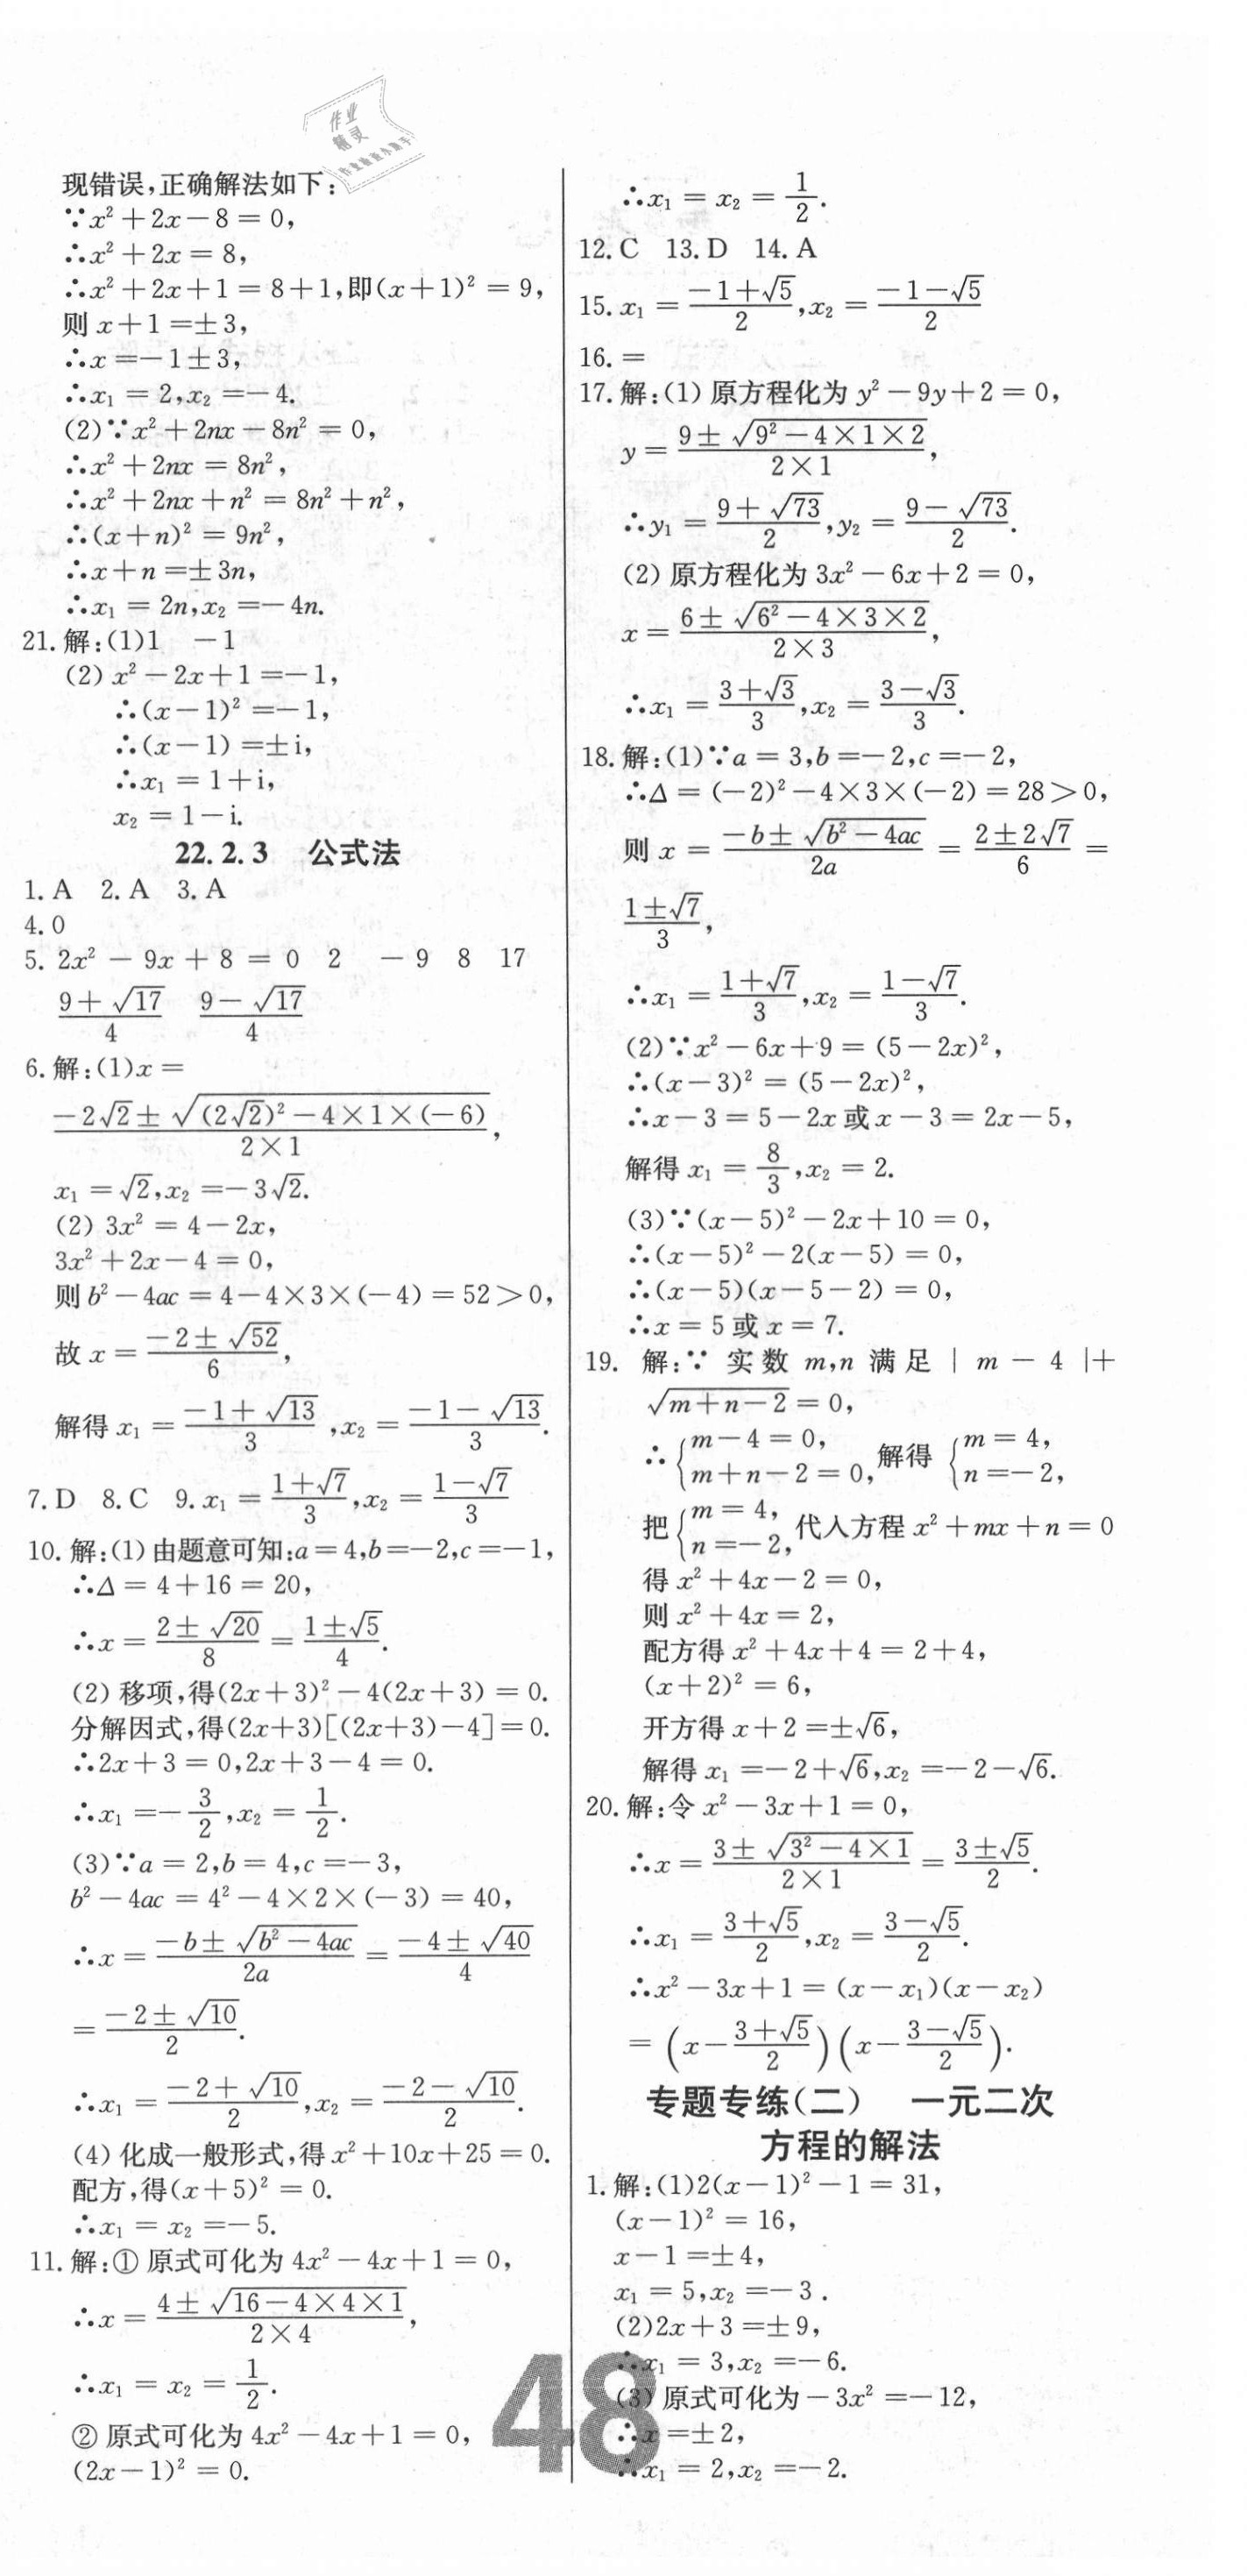 作业
精灵
现错误,正确解法如下:
∵x²+2x-8=0,
∴x²+2x=8,
∴x²+2x+1=8+1,即(x+1)²=9,
则x+1=±3,
∴x=-1±3,
∴x₁=2,x₂=-4.
(2)∵x²+2nx-8n²=0,
∴x²+2nx=8n²,
∴x²+2nx+n²=8n²+n²,
∴(x+n)²=9n²,
∴x+n=±3n,
∴x₁=2n,x₂=-4n.
21.解:(1)1 -1
(2)x²-2x+1=-1,
∴(x-1)²=-1,
∴(x-1)=±i,
∴x₁=1+i,
x₂=1-i.
22.2.3 公式法
1.A 2.A 3.A
4.0
5.2x²-9x+8=0 2 -9 8 17
(9+√17)/4 (9-√17)/4
6.解:(1)x=
(-2√2±√((2√2)²-4×1×(-6)))/(2×1),
x₁=√2,x₂=-3√2.
(2)3x²=4-2x,
3x²+2x-4=0,
则b²-4ac=4-4×3×(-4)=52>0,
故x=(-2±√52)/6,
解得x₁=(-1+√13)/3,x₂=(-1-√13)/3.
7.D 8.C 9.x₁=(1+√7)/3,x₂=(1-√7)/3
10.解:(1)由题意可知:a=4,b=-2,c=-1,
∴Δ=4+16=20,
∴x=(2±√20)/8=(1±√5)/4.
(2)移项,得(2x+3)²-4(2x+3)=0.
分解因式,得(2x+3)[(2x+3)-4]=0.
∴2x+3=0,2x+3-4=0.
∴x₁=-3/2,x₂=1/2.
(3)∵a=2,b=4,c=-3,
b²-4ac=4²-4×2×(-3)=40,
∴x=(-b±√(b²-4ac))/2a=(-4±√40)/4
=(-2±√10)/2.
∴x₁=(-2+√10)/2,x₂=(-2-√10)/2.
(4)化成一般形式,得x²+10x+25=0.
配方,得(x+5)²=0.
∴x₁=x₂=-5.
11.解:①原式可化为4x²-4x+1=0,
∴x=(4±√(16-4×4×1))/(2×4),
∴x₁=x₂=1/2.
②原式可化为4x²-4x+1=0,
(2x-1)²=0.
∴x₁=x₂=1/2.
12.C 13.D 14.A
15.x₁=(-1+√5)/2,x₂=(-1-√5)/2
16.=
17.解:(1)原方程化为y²-9y+2=0,
y=(9±√(9²-4×1×2))/(2×1),
∴y₁=(9+√73)/2,y₂=(9-√73)/2.
(2)原方程化为3x²-6x+2=0,
x=(6±√(6²-4×3×2))/(2×3),
∴x₁=(3+√3)/3,x₂=(3-√3)/3.
18.解:(1)∵a=3,b=-2,c=-2,
∴Δ=(-2)²-4×3×(-2)=28>0,
则x=(-b±√(b²-4ac))/2a=(2±2√7)/6=
(1±√7)/3,
∴x₁=(1+√7)/3,x₂=(1-√7)/3.
(2)∵x²-6x+9=(5-2x)²,
∴(x-3)²=(5-2x)²,
∴x-3=5-2x或x-3=2x-5,
解得x₁=8/3,x₂=2.
(3)∵(x-5)²-2x+10=0,
∴(x-5)²-2(x-5)=0,
∴(x-5)(x-5-2)=0,
∴x=5或x=7.
19. 解:∵ 实数 m,n 满足 | m - 4 |+
√(m+n-2)=0,
∴{m-4=0, m+n-2=0,解得{m=4, n=-2,
把{m=4, n=-2,代入方程x²+mx+n=0
得x²+4x-2=0,
则x²+4x=2,
配方得x²+4x+4=2+4,
(x+2)²=6,
开方得x+2=±√6,
解得x₁=-2+√6,x₂=-2-√6.
20.解:令x²-3x+1=0,
∴x=(3±√(3²-4×1))/(2×1)=(3±√5)/2.
∴x₁=(3+√5)/2,x₂=(3-√5)/2.
∴x²-3x+1=(x-x₁)(x-x₂)
=(x-(3+√5)/2)(x-(3-√5)/2).
专题专练(二) 一元二次
方程的解法
1.解:(1)2(x-1)²-1=31,
(x-1)²=16,
x-1=±4,
x₁=5,x₂=-3.
(2)2x+3=±9,
∴x₁=3,x₂=-6.
(3)原式可化为-3x²=-12,
∴x=±2,
∴x₁=2,x₂=-2.
48